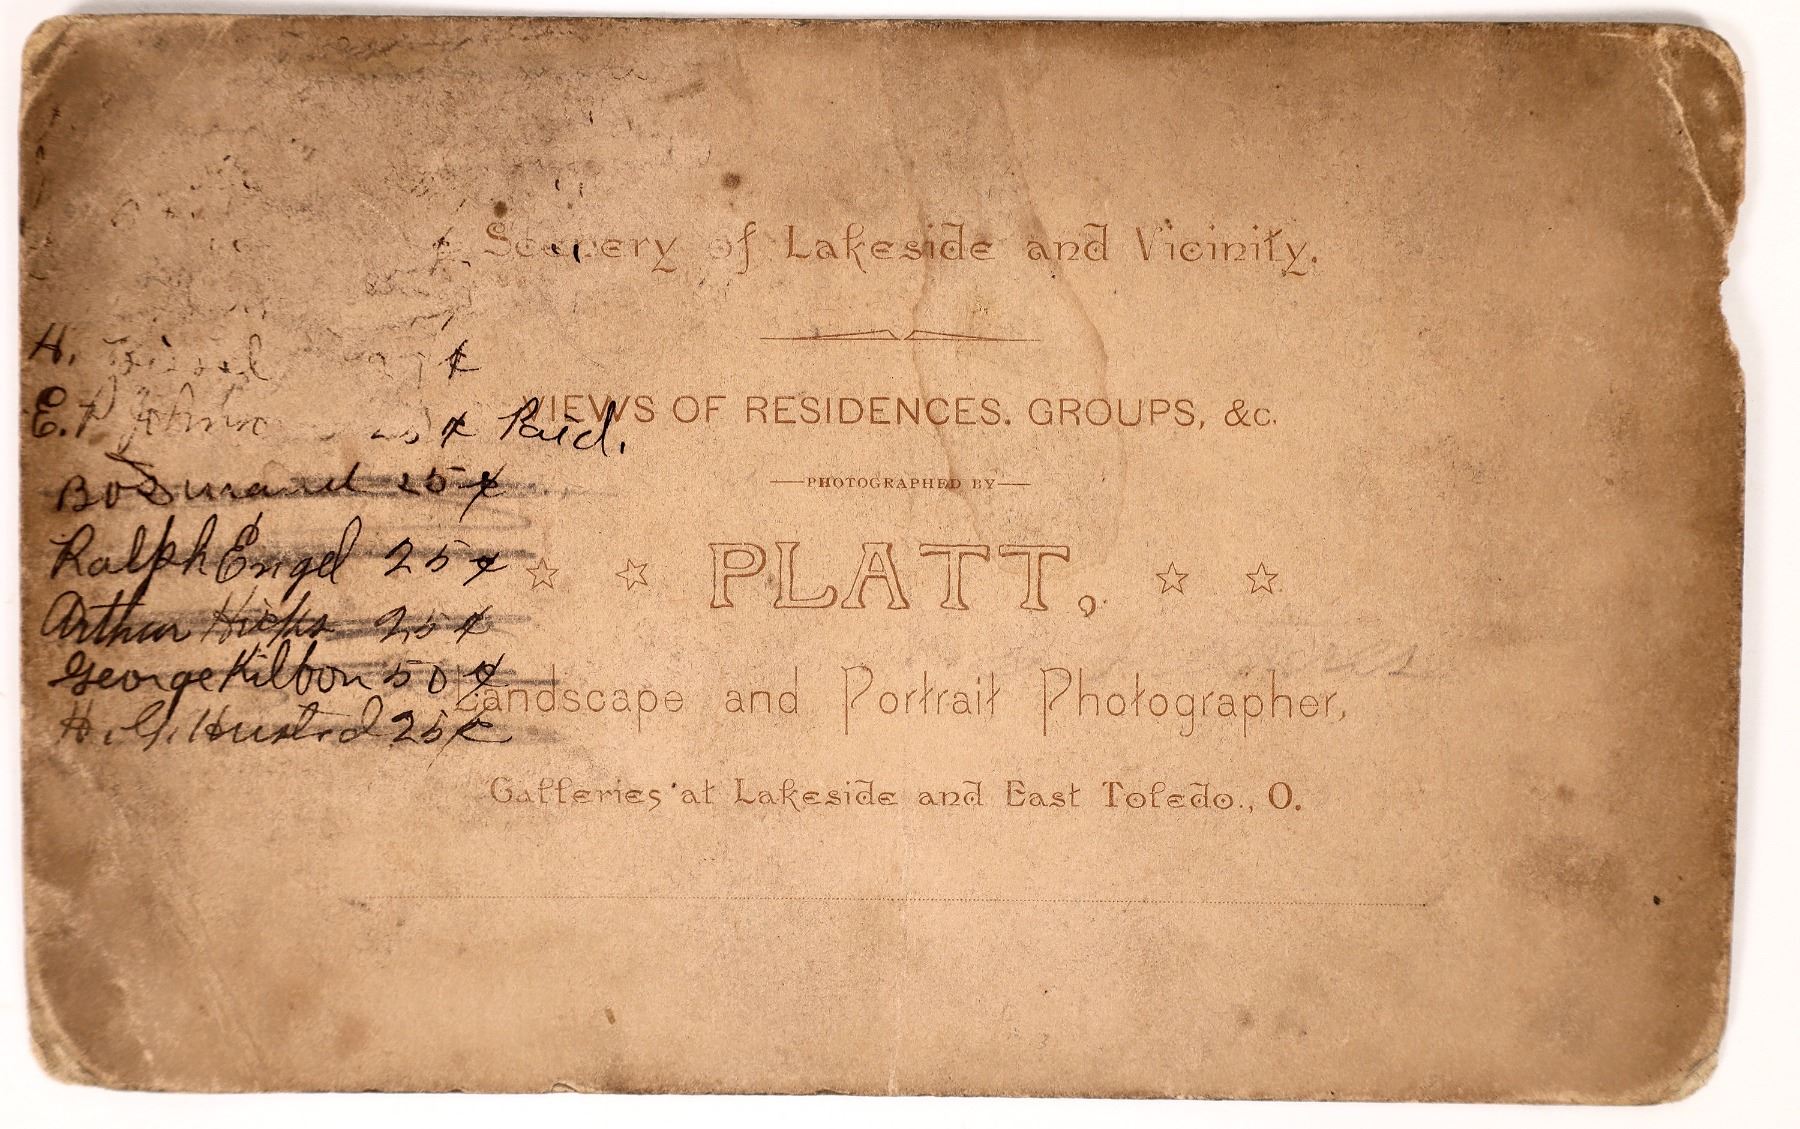 Scenery of Lakeside and Vicinity.
H. ¢
VIEWS OF RESIDENCES. GROUPS, &c.
E. 25 ¢ Paid.
25 ¢
PHOTOGRAPHED BY
Ralph Engel 25 ¢
PLATT,
Arthur Hicks 25 ¢
George Kilbon 50 ¢
Landscape and Portrait Photographer,
H. G. Husted 25 ¢
Galleries at Lakeside and East Toledo., O.